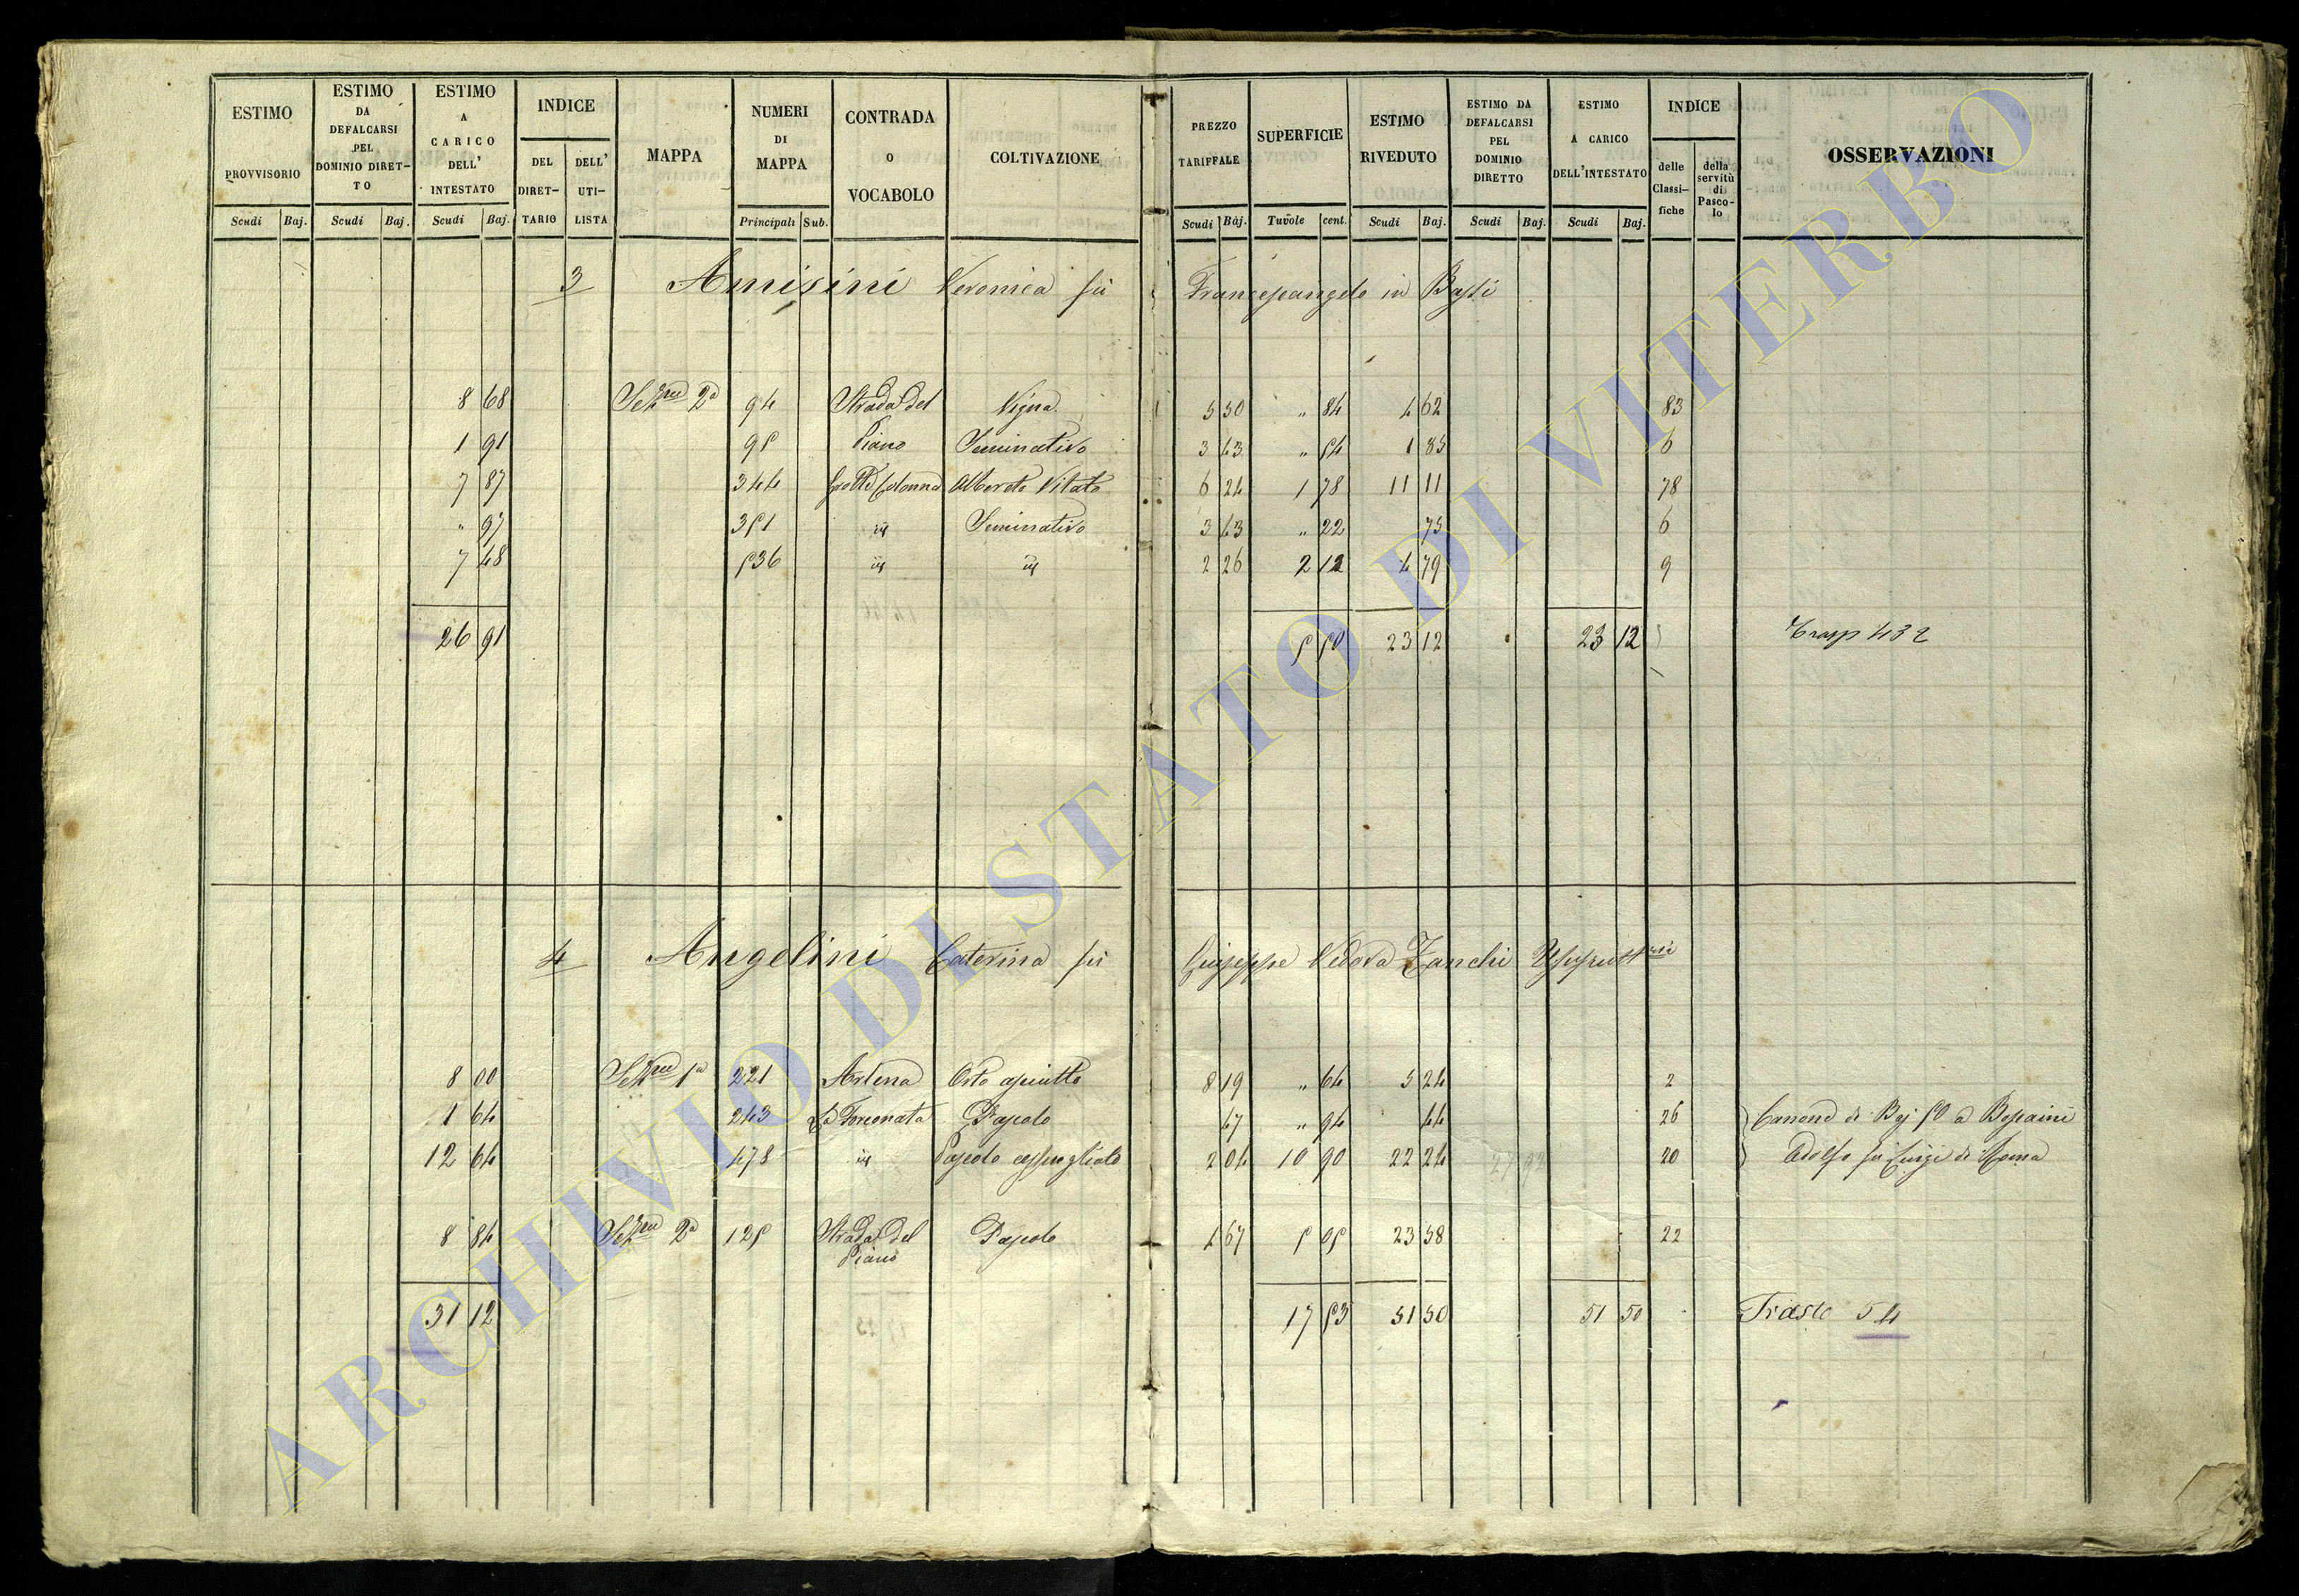 ESTIMO PROVVISORIO
ESTIMO DA DEFALCARSI PEL DOMINIO DIRET- TO
ESTIMO A CARICO DELL' INTESTATO
INDICE
DEL DIRET- TARIO
DELL' UTI- LISTA
MAPPA
NUMERI DI MAPPA
CONTRADA O VOCABOLO
COLTIVAZIONE
PREZZO TARIFFALE
SUPERFICIE
ESTIMO RIVEDUTO
ESTIMO DA DEFALCARSI PEL DOMINIO DIRETTO
ESTIMO A CARICO DELL'INTESTATO
INDICE
delle Classi- fiche
della servitù di Pasco- lo
OSSERVAZIONI
Scudi Baj. Scudi Baj. Scudi Baj. Principali Sub. Scudi Baj. Tavole cent. Scudi Baj. Scudi Baj. Scudi Baj.
3 Amisini Veronica fu Francescangelo in Bassi
8 68 Sezne 2a 94 Strada del Vigna 5 50 " 84 4 62 83
1 91 95 Piano Seminativo 3 43 " 54 1 85 6
7 87 344 Grotte Colonna Alberato Vitato 6 24 1 78 11 11 78
" 97 351 id Seminativo 3 43 " 22 75 6
7 48 536 id id 2 26 2 12 4 79 9
26 91 5 50 23 12 23 12 Trasp 432
4 Angelini Caterina fu Giuseppe Vedova Zanchi Usufruttria
8 00 Sezne 1a 221 Artena Orto asciutto 8 19 " 64 5 24 2
1 64 243 La Torconata Pascolo 47 " 94 44 26 Canone di Baj 50 a
12 64 478 id Pascolo cespugliato 2 04 10 90 22 24 20 Adolfo fu Luigi di Roma
8 84 Sezne 2a 125 Strada del Pascolo 4 67 5 05 23 58 22
Piano
31 12 17 53 51 50 51 50 Traste 54
ARCHIVIO DI STATO DI VITERBO